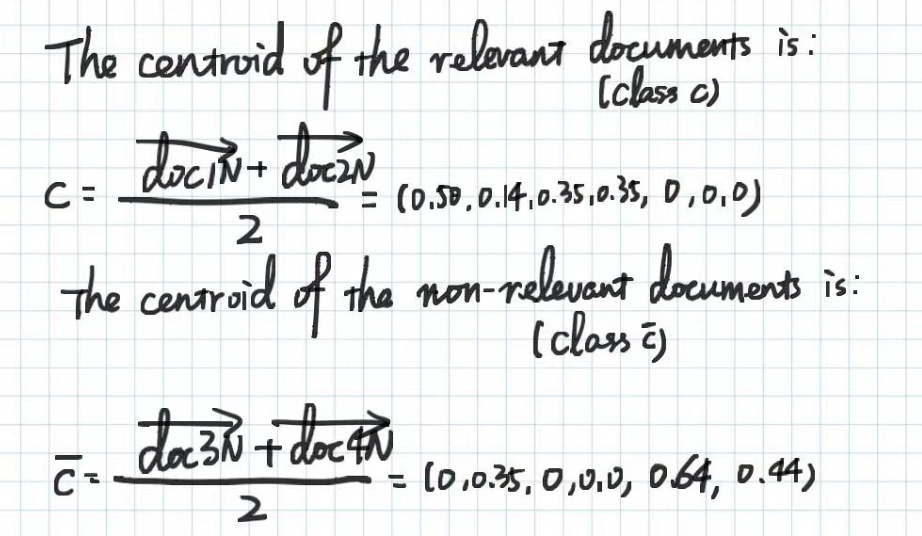 The centroid of the relevant documents is:
(class c)
C = (doc1N + doc2N) / 2 = (0.50, 0.14, 0.35, 0.35, 0, 0, 0)
The centroid of the non-relevant documents is:
(class c̄)
c̄ = (doc3N + doc4N) / 2 = (0, 0.35, 0, 0, 0, 0.64, 0.44)